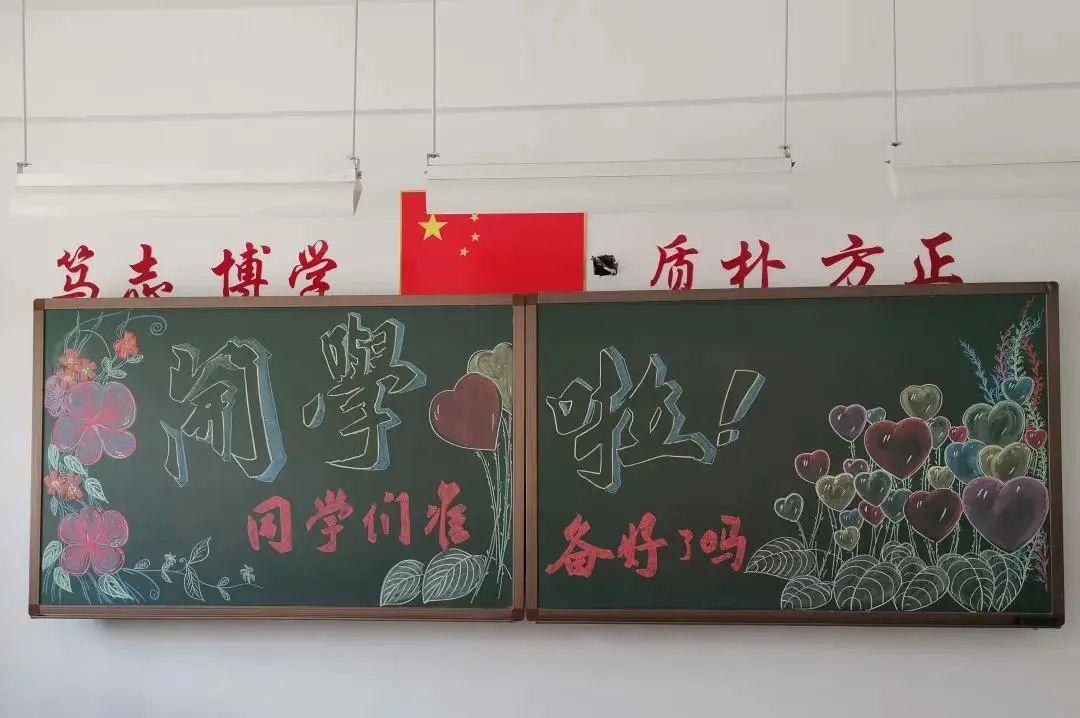 笃志 博学 质朴 方正
開學啦!
同学们准备好了吗